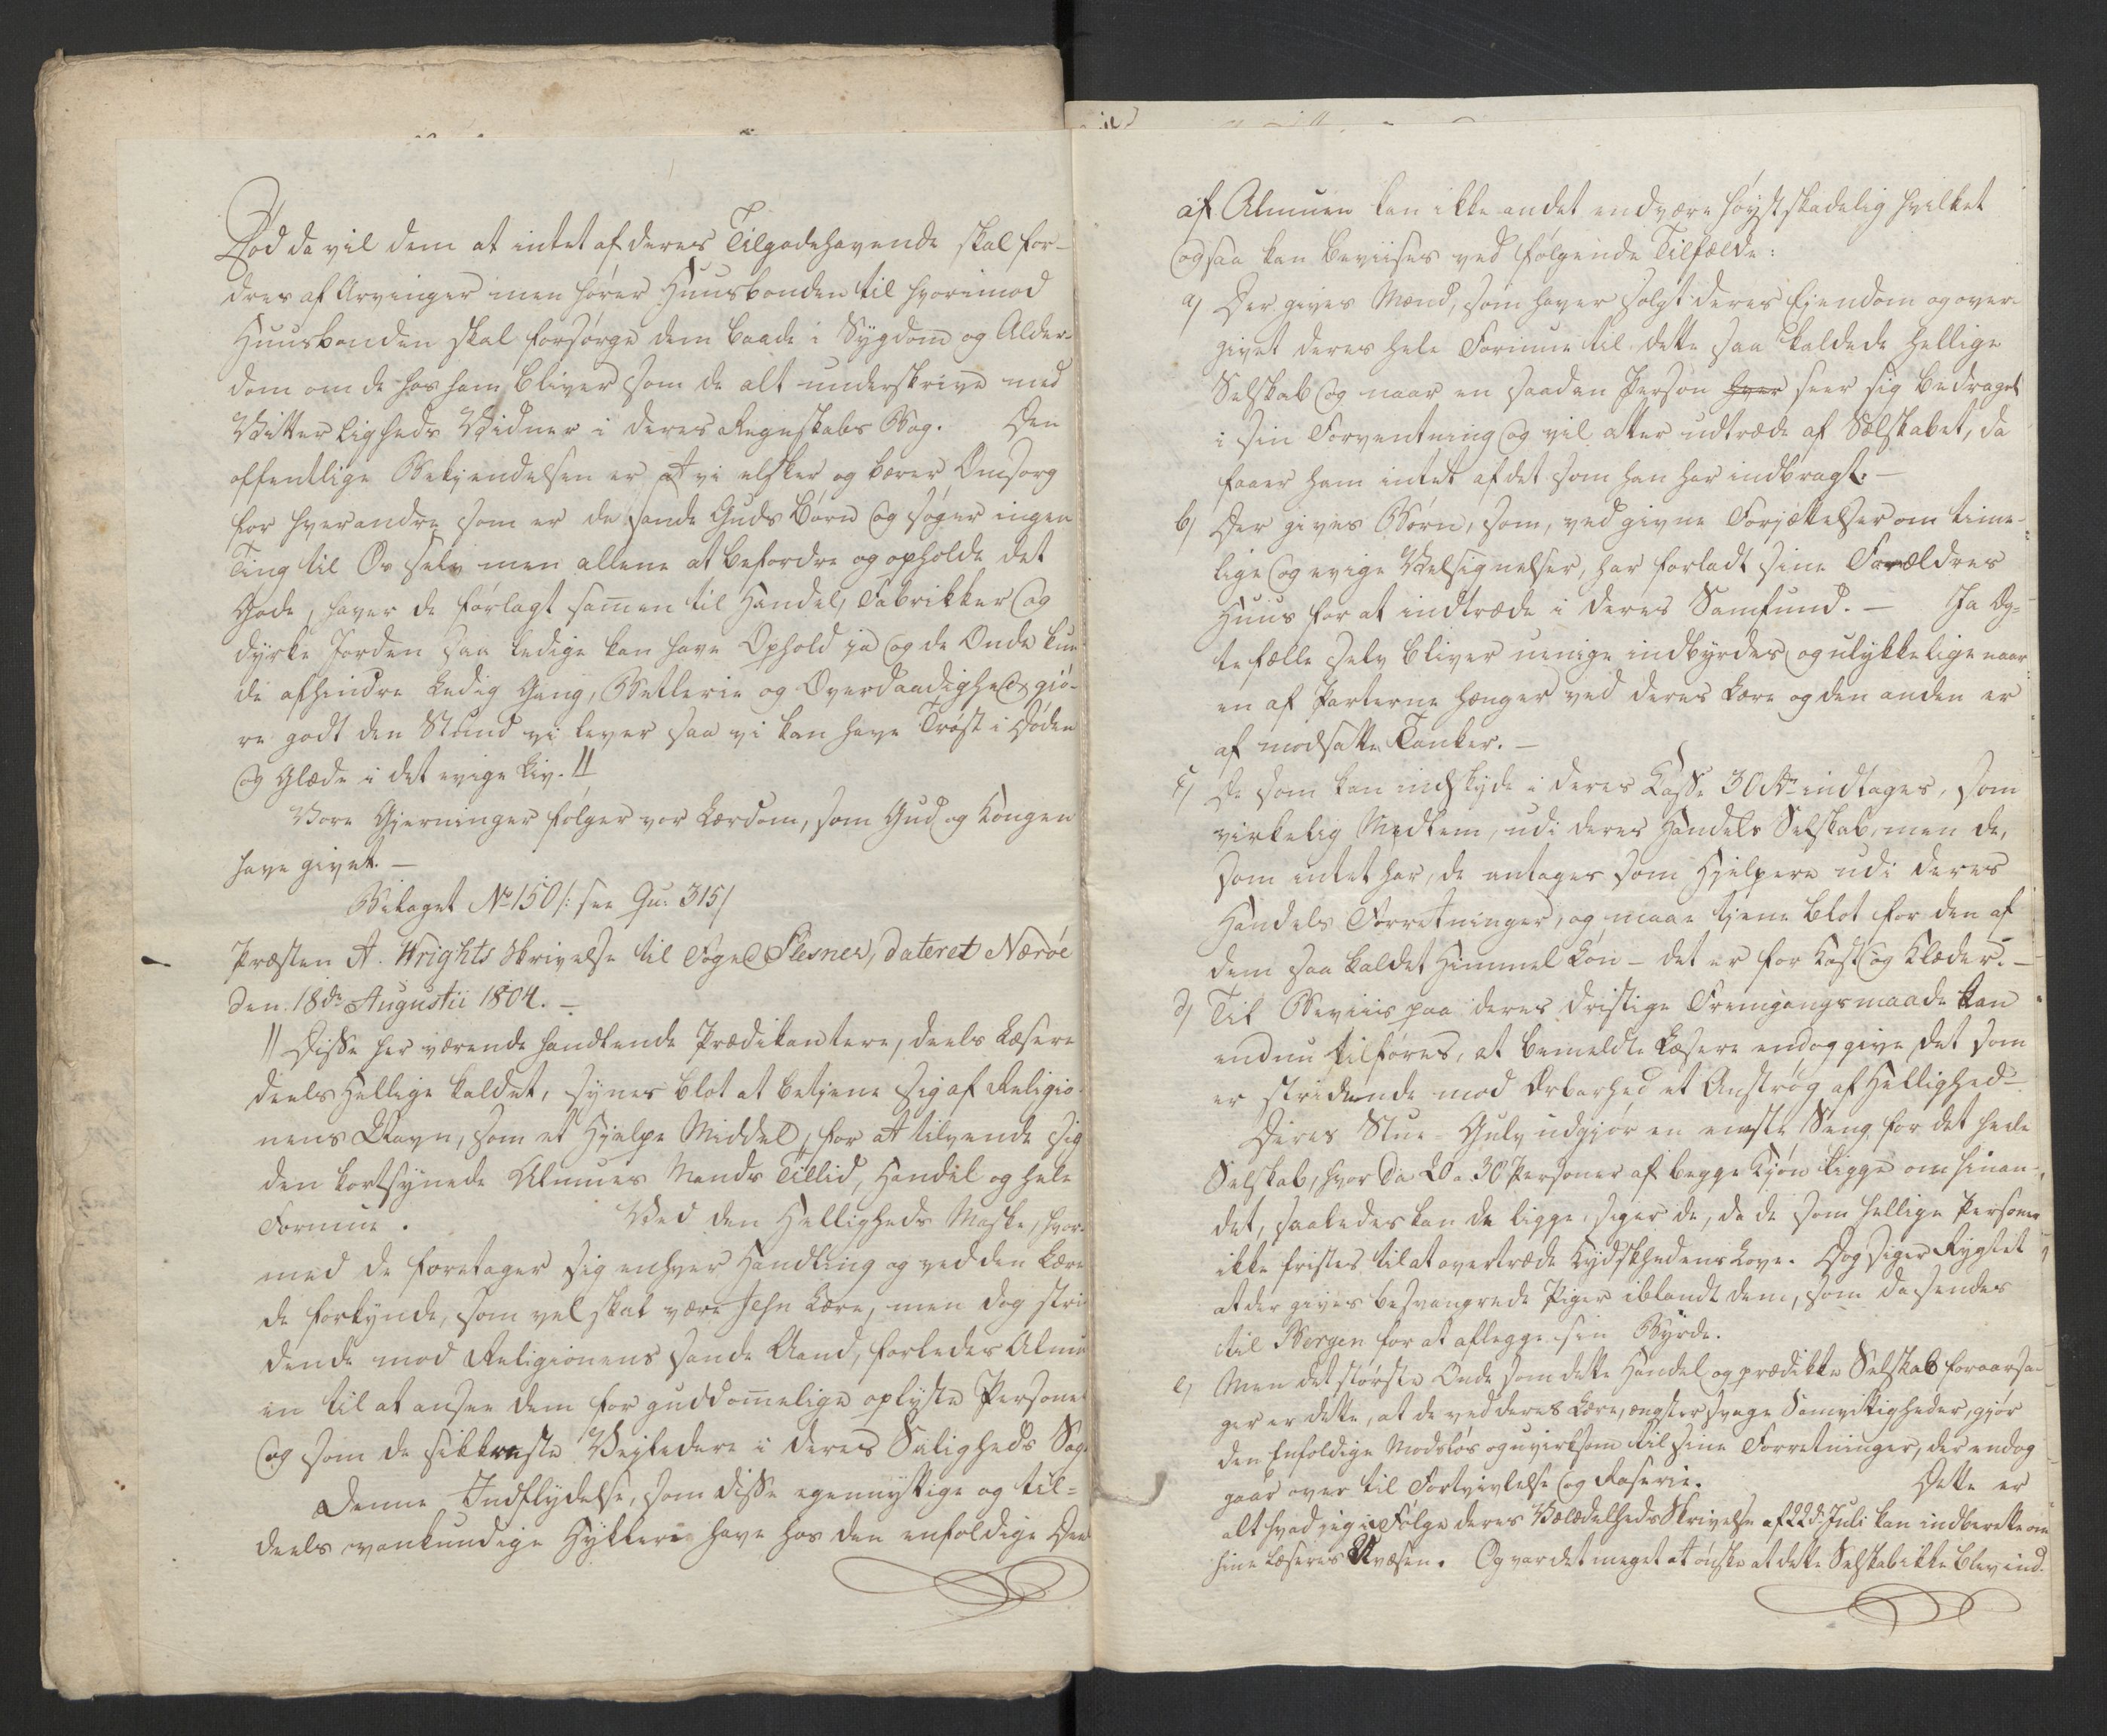 Död da vil dem at intet af deres Tilgodehavende skal for-
dres af Arvinger men hører Huusbonden til hvorimod
Huusbonden skal forsørge dem baade i Sygdom og Alder-
dom om de hos ham bliver som de alt underskrive med
Vitterligheds Vidner i deres Regnskabs Bog. Den
offentlige Bekjendelsen er at vi elsker og bærer Omsorg
for hverandre som er de sande Guds Børn og søger ingen
Ting til Os selv men allene at befordre og opholde det
Gode, haver de forlagt samen til Handel, Fabrikker og
dyrke Jorden saa ledige kan have Ophold ja og de Onde kun
de afhindre Ledig Gang, Betlerie og Overdaadighed giö-
re godt den Stund vi lever saa vi kan have Trøst i Døden
og Glæde i det evige Liv. //
Vore Gjerninger følger vor Lærdom, som Gud og Kongen
have givet. —
Bilaget No 150 /: see Qu: 315/
Præsten A. Wrights Skrivelse til Foged Flesner, dateret Nærøe
den 18de Augustii 1804. —
// Disse her værende handlende Prædikantere, deels Læsere
deels Hellige kaldet, synes blot at betjene sig af Religio-
nens Navn, som et Hjelpe Middel, for at tilvende sig
den kortsynede Almues Mands Tillid, Handel og hele
Formue. Ved den Helligheds Maske, hvor-
med de foretager sig enhver Handling og ved den Lære
de forkynde, som vel skal være Jesu Lære, men dog stri-
dende mod Religionens sande Aand, forledes Almu
en til at ansee dem for guddomelige oplyste Persone
og som de sikkreste Vejledere i deres Saligheds Sag
Denne Indflydelse, som disse egennyttige og til-
deels vankundige Hyklere have hos den enfoldige Deel
af Almuen kan ikke andet end være høyst skadelig hvilket
ogsaa kan beviises ved følgende Tilfælde:
a) Der gives Mænd, som haver solgt deres Eiendom og over-
givet deres hele Formue til dette saa kaldede hellige
Selskab og naar en saadan Person hver seer sig bedraget
i sin Forventning og vil atter udtræde af Selskabet, da
faaer ham intet af det som han har indbragt. —
b) Der gives Børn, som, ved givne Forjættelser om time-
lige og evige Velsignelser, har forladt sine Forældres
Huus for at indtræde i deres Samfund. — Ja Eg-
tefælle selv bliver uenige indbyrdes og ulykkelige naar
en af Parterne hænger ved deres Lære og den anden er
af modsatte Tanker. —
c) De som kan indskyde i deres Casse 30 Rd indtages, som
virkelig Medlem, udi deres Handels Selskab, men de,
som intet har, de antages som Hjelpere udi deres
Handels Forretninger, og maae tjene blot for den af
dem saa kaldet Himmel Løn — det er for Kost og Klæder. —
d) Til Beviis paa deres dristige Fremgangsmaade kan
endnu tilføres, at bemeldte Læsere endog give det som
er stridende mod Ærbarhed et Anstrøg af Hellighed —
Deres Stue Gulv udgjør en eneste Seng for det hele
Selskab, hvor da 20 a 30 Personer af begge Kjøn ligge om hinan-
det, saaledes kan de ligge, siger de, da de som hellige Personer
ikke fristes til at overtræde Kydskhedens Love. Dog siger Rygtet
at der gives besvangrede Piger iblandt dem, som da sendes
til Bergen for at aflegge sin Byrde.
e) Men det største Onde som dette Handel og prædikke Selskab foraarsa-
ger er dette, at de ved deres Lære, ængster svage Samvittigheder, gjør
den Enfoldige Modløs og uvirksom til sine Forretninger, der endog
gaar over til Fortvivlelse og Raserie. Dette er
alt hvad jeg i Følge deres Velædelheds Skrivelse af 22de Juli kan indberette om
hine Læseres Uvæsen. Og var det meget at ønske at dette Selskab ikke blev ind-